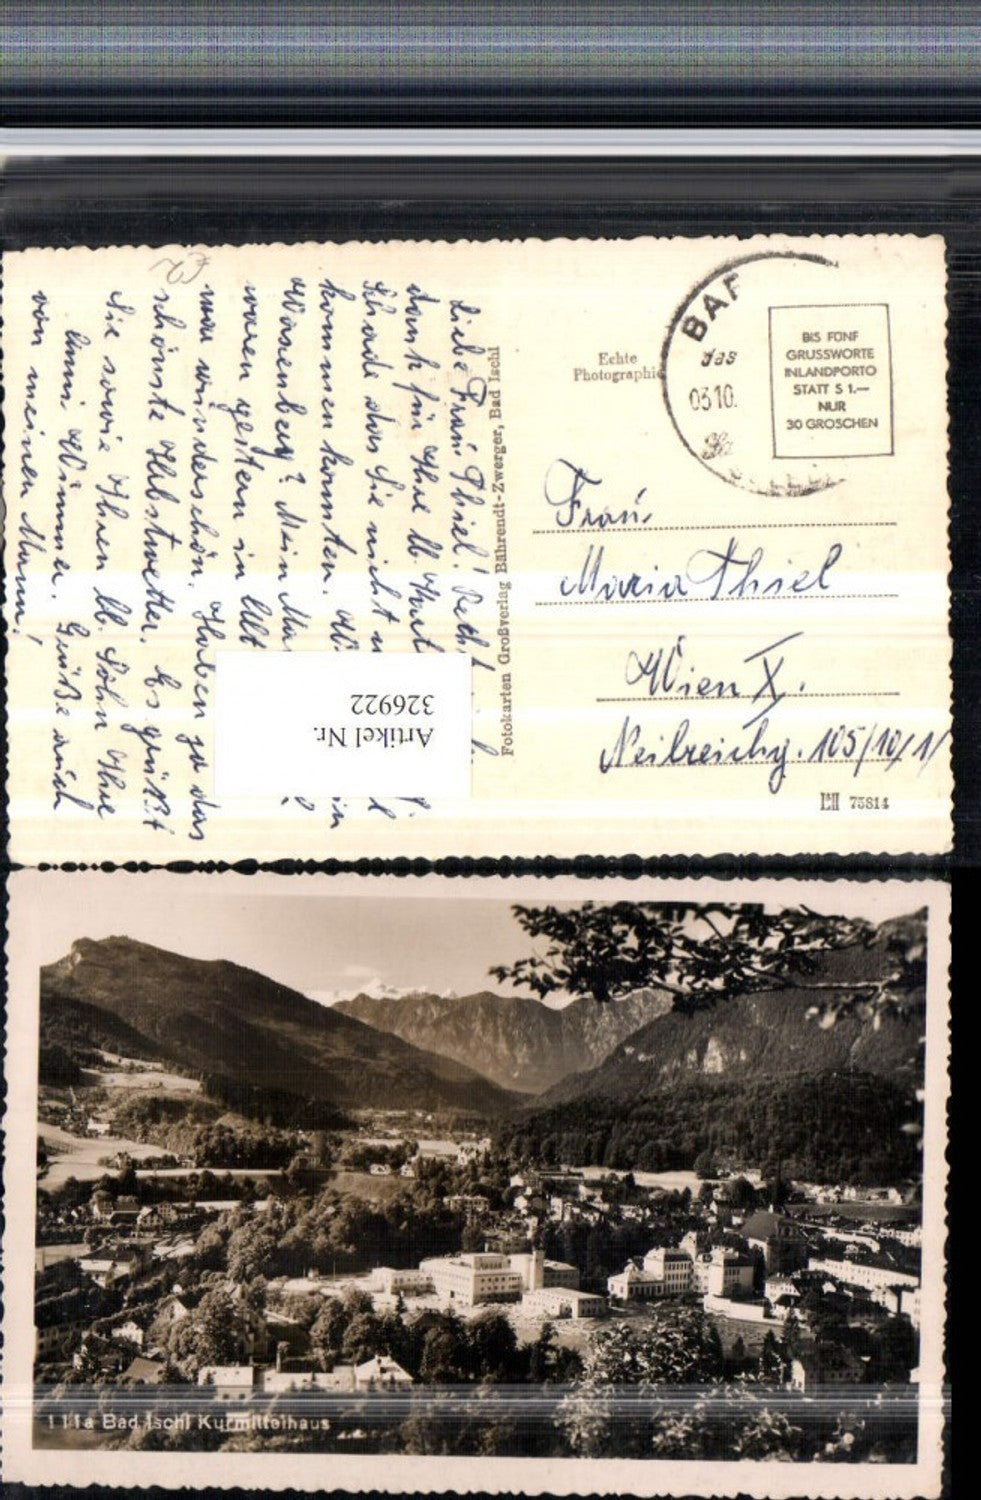 Liebe Frau Thiel!
dank für Ihre lb.
Schade das Sie nicht
kommen konnten.
Wasenberg? Mein
waren gestern in
war wunderschön. Haben ja das
schönste Herbstwetter. Es grüßt
Sie sowie Ihren lb. Sohn Ihre
Anni Wimmer. Grüße auch
von meinen Mann!
Artikel Nr.
326922
Fotokarten Großverlag Bährendt-Zwerger, Bad Ischl
Echte
Photographie
BAD
das
0310.
BIS FÜNF
GRUSSWORTE
INLANDPORTO
STATT S 1.—
NUR
30 GROSCHEN
Frau
Maria Thiel
Wien X.
Neilreichg. 105/10/1/
75814
111a Bad Ischl Kurmittelhaus